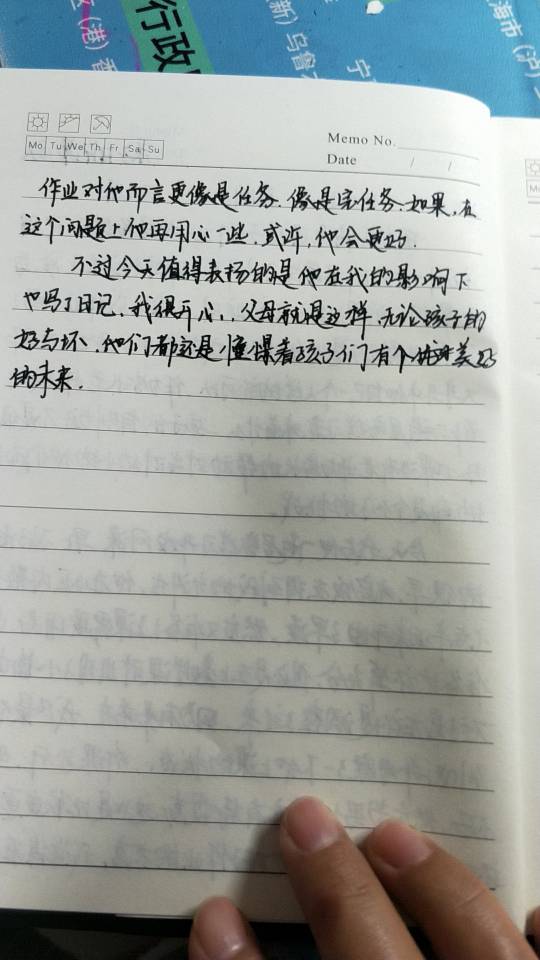 行政
新) 乌鲁
宁
海市 (沪)
(港) 香
Mo Tu We Th Fr Sa Su
Memo No.
Date / /
Mo
作业对他而言更像是任务、像是完任务.如果,在
这个问题上他再用心一些,或许,他会更好.
不过今天值得表扬的是他在我的影响下
也写了日记,我很开心,父母就是这样,无论孩子的
好与坏,他们都还是憧憬着孩子们有个美好
的未来.